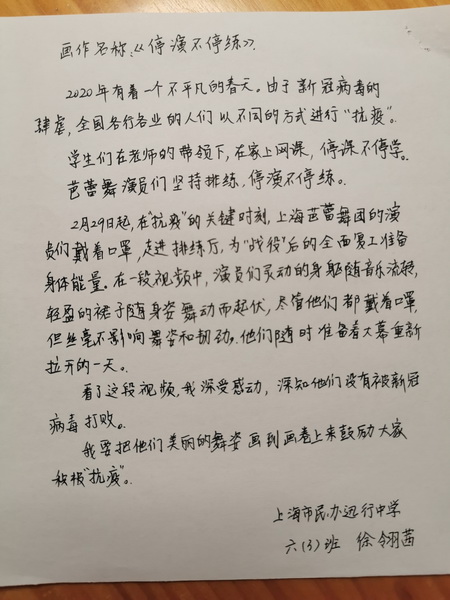 画作名称:《停演不停练》.
2020年有着一个不平凡的春天。由于新冠病毒的
肆虐,全国各行各业的人们以不同的方式进行“抗疫”。
学生们在老师的带领下,在家上网课,停课不停学。
芭蕾舞演员们坚持排练,停演不停练。
2月29日起,在“抗疫”的关键时刻,上海芭蕾舞团的演
员们戴着口罩,走进排练厅,为“战役”后的全面复工准备
身体能量。在一段视频中,演员们灵动的身躯随音乐流转,
轻盈的裙子随身姿舞动而起伏,尽管他们都戴着口罩,
但丝毫不影响舞姿和韧劲,他们随时准备着大幕重新
拉开的一天。
看了这段视频,我深受感动,深知他们没有被新冠
病毒打败。
我要把他们美丽的舞姿画到画卷上来鼓励大家
积极“抗疫”。
上海市民办远行中学
六(3)班 徐翎茜